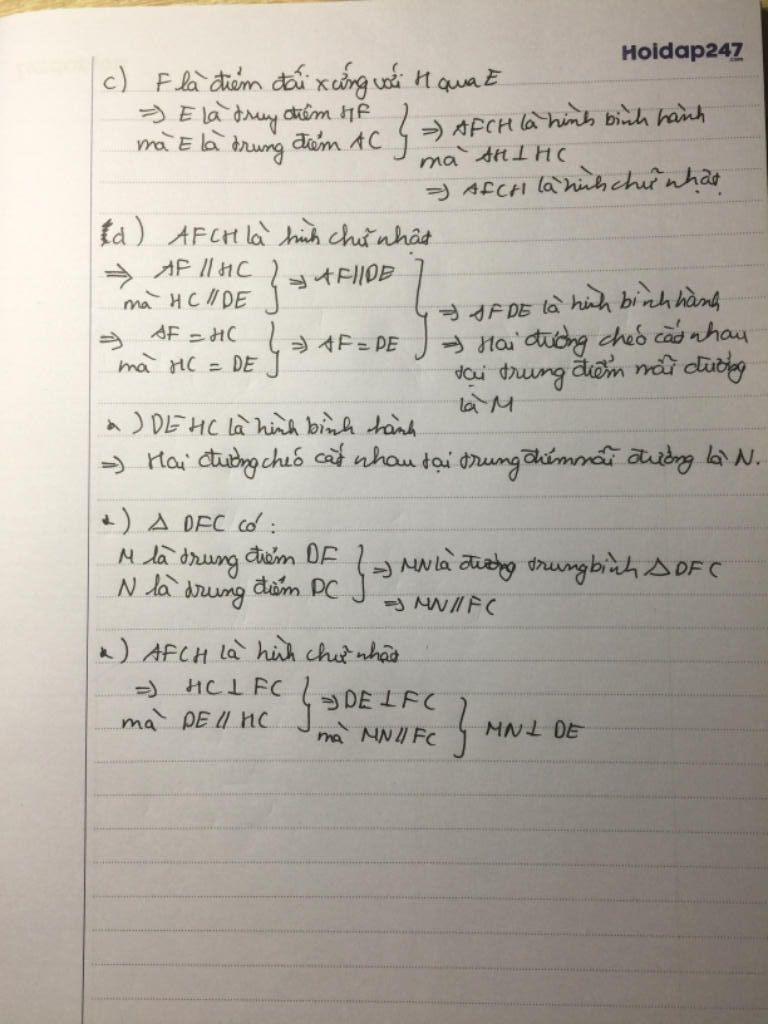 Hoidap247
.com
c) F là điểm đối xứng với H qua E
⇒ E là trung điểm HF
mà E là trung điểm AC
⇒ AFCH là hình bình hành
mà AH ⊥ HC
⇒ AFCH là hình chữ nhật
d) AFCH là hình chữ nhật
⇒ AF // HC
mà HC // DE
⇒ AF // DE
⇒ AF = HC
mà HC = DE
⇒ AF = DE
⇒ AFDE là hình bình hành
⇒ Hai đường chéo cắt nhau
tại trung điểm mỗi đường
là M
*) DEHC là hình bình hành
⇒ Hai đường chéo cắt nhau tại trung điểm mỗi đường là N.
*) Δ DFC có:
M là trung điểm DF
N là trung điểm DC
⇒ MN là đường trung bình Δ DFC
⇒ MN // FC
*) AFCH là hình chữ nhật
⇒ HC ⊥ FC
mà DE // HC
⇒ DE ⊥ FC
mà MN // FC
MN ⊥ DE